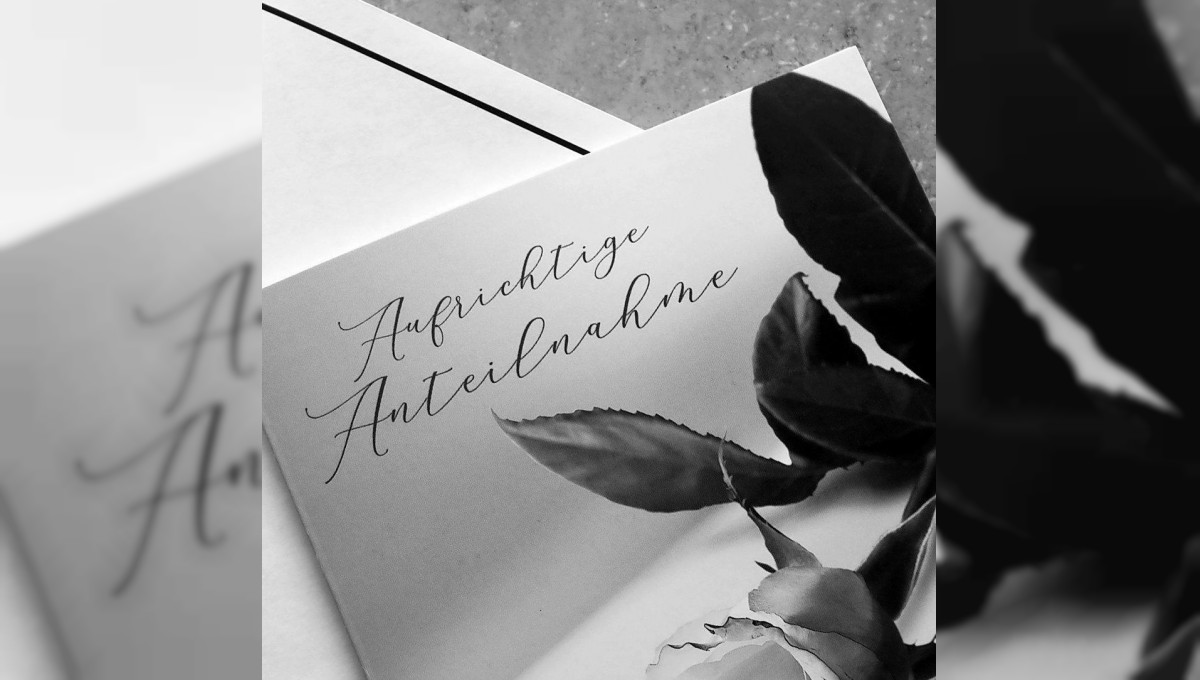 Aufrichtige
Anteilnahme